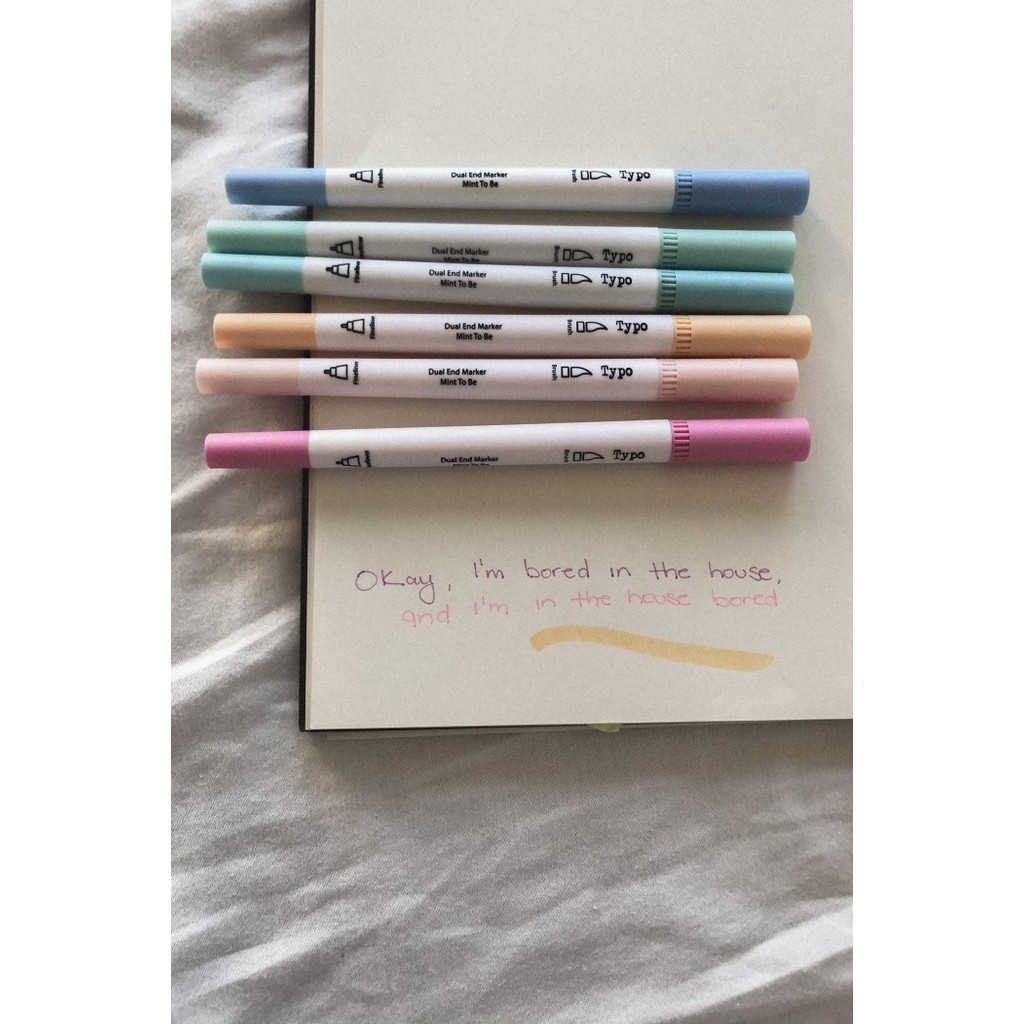 Fineline Dual End Marker Brush Typo
Mint To Be
Dual End Marker Typo
Mint To Be
Fineline Dual End Marker Brush Typo
Mint To Be
Fineline Dual End Marker Brush Typo
Mint To Be
Fineline Dual End Marker Brush Typo
Mint To Be
Dual End Marker Typo
Okay, I'm bored in the house,
and I'm in the house bored